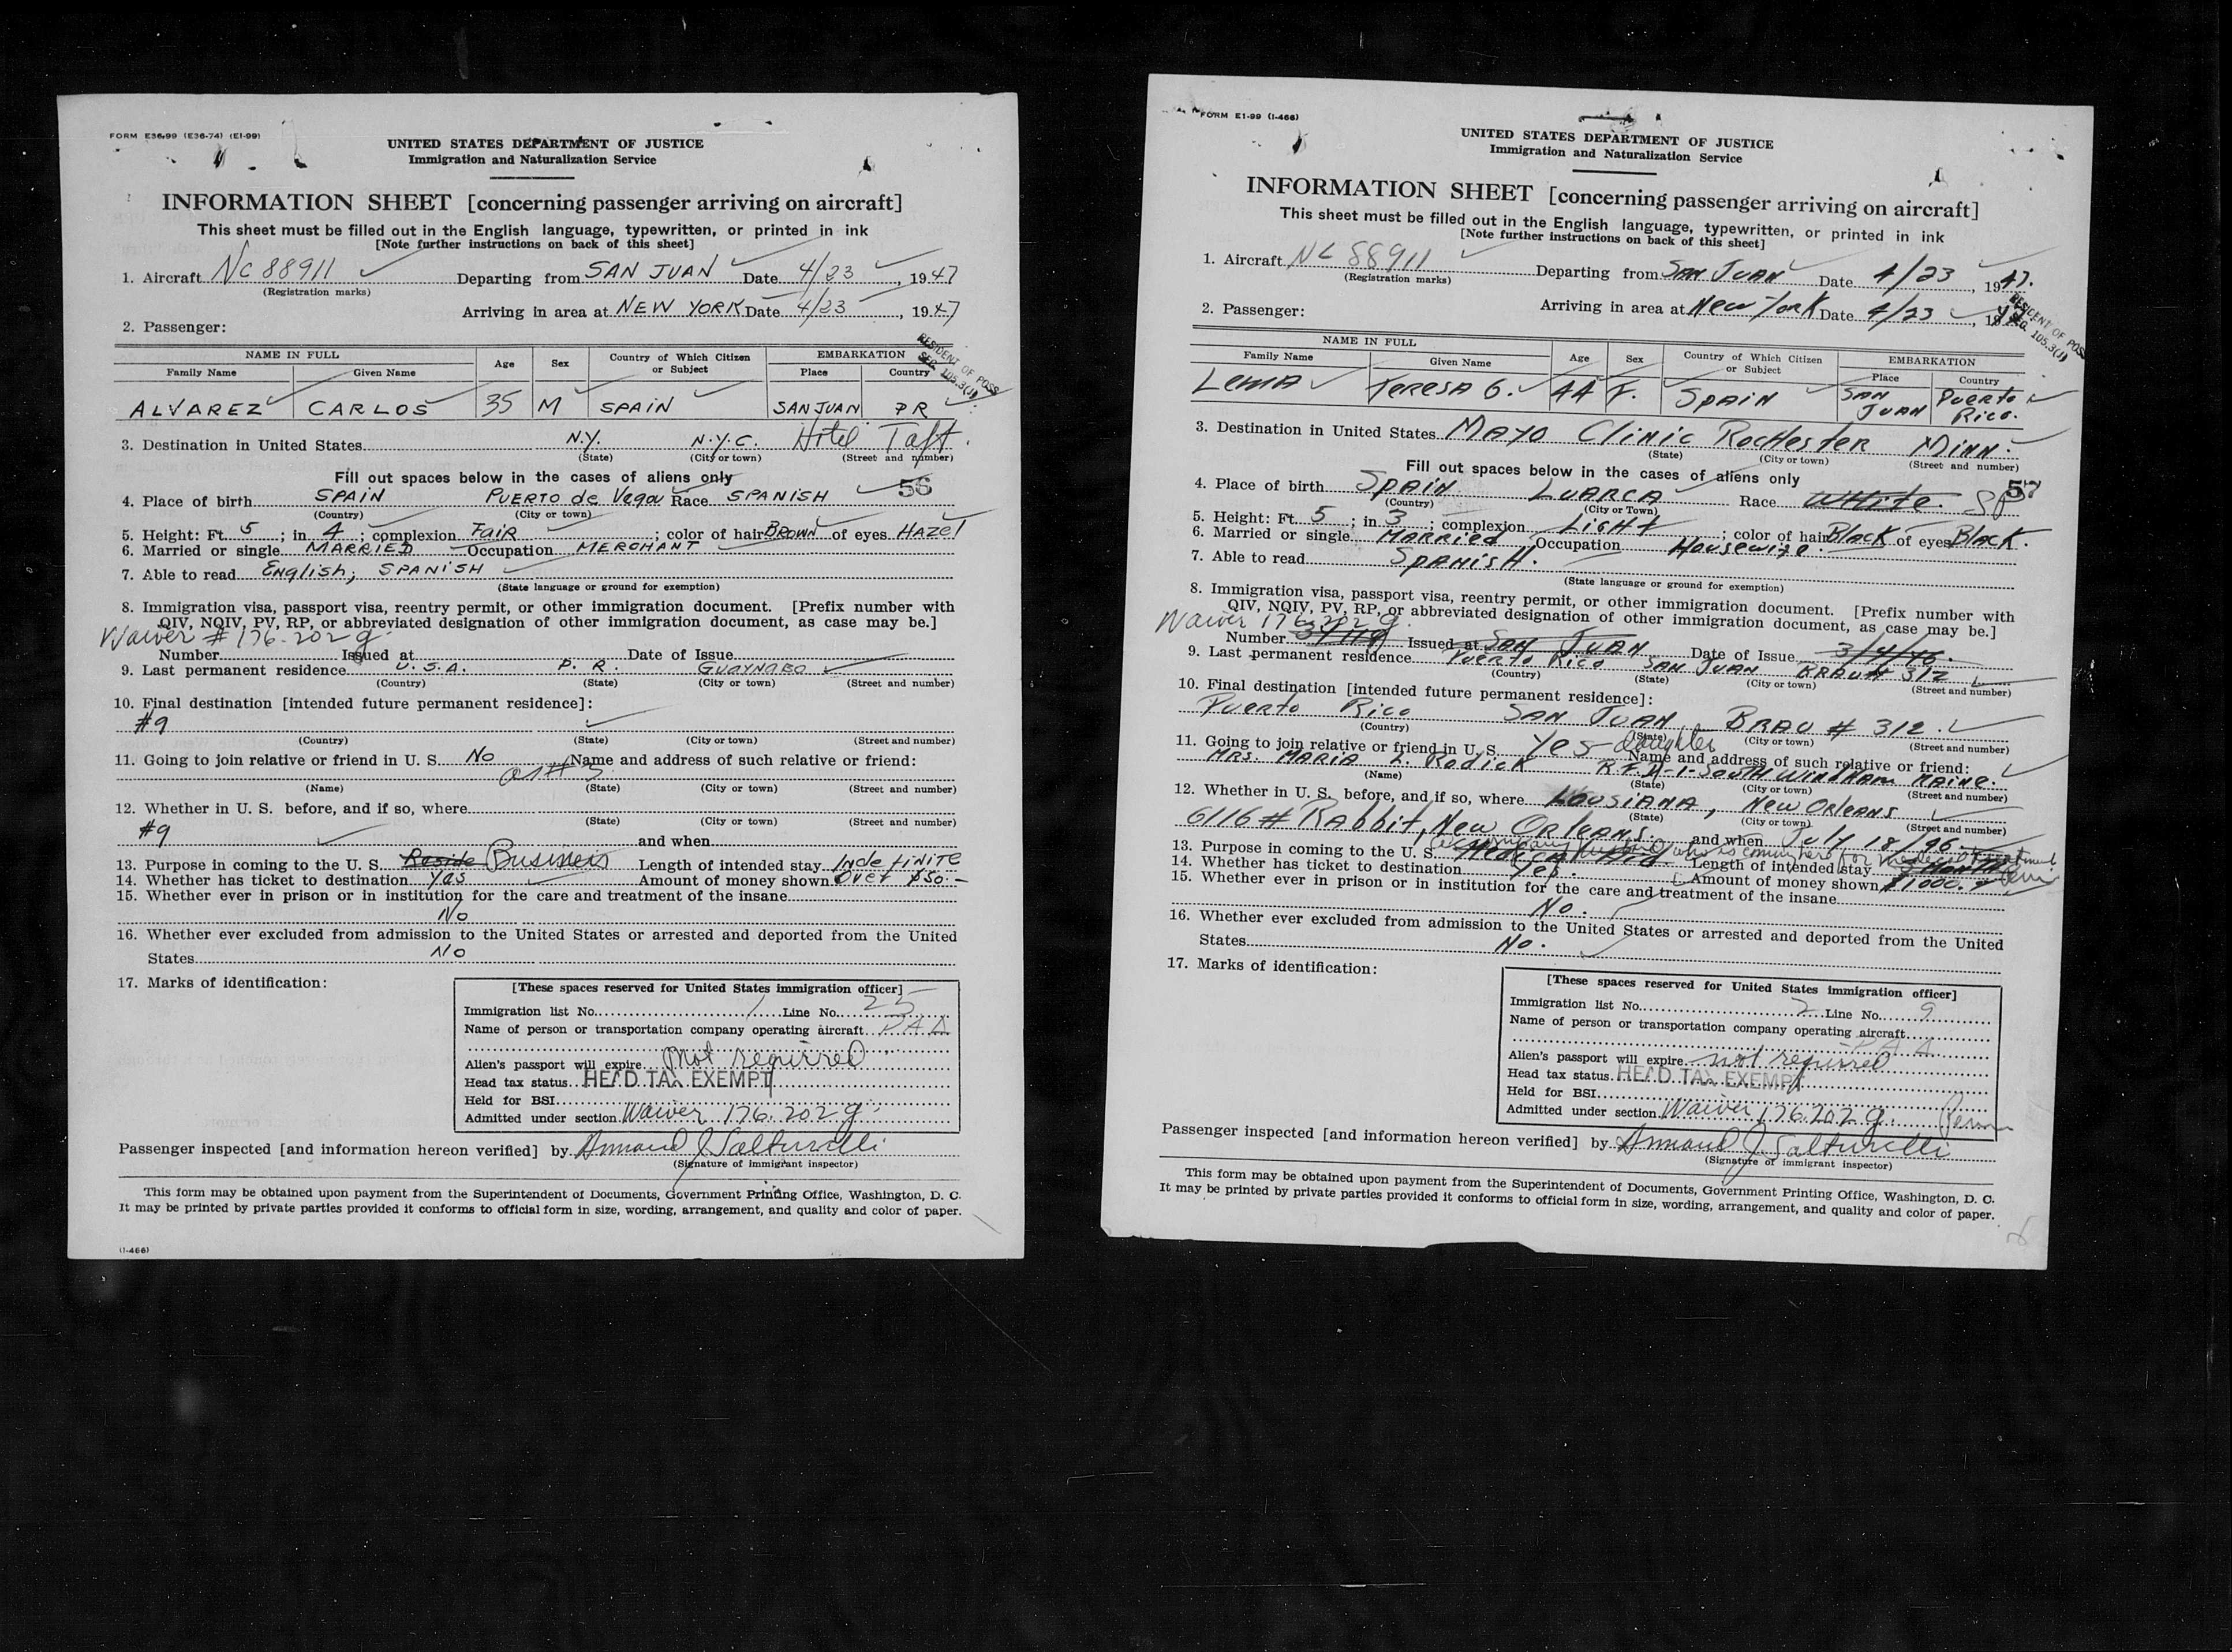 FORM E36-99 (E36-74) (E1-99)
UNITED STATES DEPARTMENT OF JUSTICE
Immigration and Naturalization Service
INFORMATION SHEET [concerning passenger arriving on aircraft]
This sheet must be filled out in the English language, typewritten, or printed in ink
[Note further instructions on back of this sheet]
1. Aircraft NC 88911 Departing from SAN JUAN Date 4/23, 1947
(Registration marks)
Arriving in area at NEW YORK Date 4/23, 1947
2. Passenger:
RESIDENT OF POSS
SEC. 105.3(J)
NAME IN FULL Age Sex Country of Which Citizen or Subject EMBARKATION
Family Name Given Name Place Country
ALVAREZ CARLOS 35 M SPAIN SAN JUAN PR
3. Destination in United States N.Y. N.Y.C. Hotel Taft.
(State) (City or town) (Street and number)
Fill out spaces below in the cases of aliens only
56
4. Place of birth SPAIN PUERTO de Vega Race SPANISH
(Country) (City or town)
5. Height: Ft. 5; in 4; complexion FAIR; color of hair BROWN of eyes HAZEL
6. Married or single MARRIED Occupation MERCHANT
7. Able to read English; SPANISH
(State language or ground for exemption)
8. Immigration visa, passport visa, reentry permit, or other immigration document. [Prefix number with
QIV, NQIV, PV, RP, or abbreviated designation of other immigration document, as case may be.]
Waiver # 176.202 g.
Number Issued at Date of Issue
9. Last permanent residence U.S.A. P.R. GUAYNABO
(Country) (State) (City or town) (Street and number)
10. Final destination [intended future permanent residence]:
#9
(Country) (State) (City or town) (Street and number)
11. Going to join relative or friend in U. S. No Name and address of such relative or friend:
as # 3
(Name) (State) (City or town) (Street and number)
12. Whether in U. S. before, and if so, where
(State) (City or town) (Street and number)
#9 and when
13. Purpose in coming to the U. S. Reside Business Length of intended stay INdeFINITE
14. Whether has ticket to destination Yes Amount of money shown Over $50.-
15. Whether ever in prison or in institution for the care and treatment of the insane
No
16. Whether ever excluded from admission to the United States or arrested and deported from the United
States No
17. Marks of identification:
[These spaces reserved for United States immigration officer]
Immigration list No. 1 Line No. 25
Name of person or transportation company operating aircraft PAA
Alien's passport will expire not required
Head tax status HEAD TAX EXEMPT
Held for BSI
Admitted under section Waiver 176.202 g.
Passenger inspected [and information hereon verified] by Armand J. Salturelli
(Signature of immigrant inspector)
This form may be obtained upon payment from the Superintendent of Documents, Government Printing Office, Washington, D. C.
It may be printed by private parties provided it conforms to official form in size, wording, arrangement, and quality and color of paper.
(I-466)
FORM E1-99 (I-466)
UNITED STATES DEPARTMENT OF JUSTICE
Immigration and Naturalization Service
INFORMATION SHEET [concerning passenger arriving on aircraft]
This sheet must be filled out in the English language, typewritten, or printed in ink
[Note further instructions on back of this sheet]
1. Aircraft NC 88911 Departing from SAN JUAN Date 4/23, 1947.
(Registration marks)
Arriving in area at New York Date 4/23, 1947
2. Passenger:
RESIDENT OF POSS
SEC. 105.3(J)
NAME IN FULL Age Sex Country of Which Citizen or Subject EMBARKATION
Family Name Given Name Place Country
LEMA TERESA G. 44 F. SPAIN SAN JUAN Puerto Rico.
3. Destination in United States MAYO Clinic Rochester Minn.
(State) (City or town) (Street and number)
Fill out spaces below in the cases of aliens only
57
4. Place of birth SPAIN LUARCA Race White. SP
(Country) (City or Town)
5. Height: Ft. 5; in 3; complexion Light; color of hair Black of eyes Black.
6. Married or single MARRIED Occupation Housewife.
7. Able to read SPANISH.
(State language or ground for exemption)
8. Immigration visa, passport visa, reentry permit, or other immigration document. [Prefix number with
QIV, NQIV, PV, RP, or abbreviated designation of other immigration document, as case may be.]
Waiver 176.202 g.
Number Issued at SAN JUAN Date of Issue 3/4/46.
9. Last permanent residence Puerto Rico SAN JUAN BRAU # 312
(Country) (State) (City or town) (Street and number)
10. Final destination [intended future permanent residence]:
Puerto Rico SAN JUAN BRAU # 312.
(Country) (State) (City or town) (Street and number)
11. Going to join relative or friend in U. S. Yes - daughter Name and address of such relative or friend:
MRS. MARIA L. Rodick R.F.D-1-South Windham Maine.
(Name) (State) (City or town) (Street and number)
12. Whether in U. S. before, and if so, where LOUSIANA, New Orleans
(State) (City or town) (Street and number)
6116 # Rabbit, New Orleans. and when July 18/26.
13. Purpose in coming to the U. S. Medical Aid Length of intended stay
who is coming here for medical treatment
14. Whether has ticket to destination Yes. Amount of money shown $1000.
15. Whether ever in prison or in institution for the care and treatment of the insane
No.
16. Whether ever excluded from admission to the United States or arrested and deported from the United
States No.
17. Marks of identification:
[These spaces reserved for United States immigration officer]
Immigration list No. 2 Line No. 9
Name of person or transportation company operating aircraft
PAA
Alien's passport will expire not required
Head tax status HEAD TAX EXEMPT
Held for BSI
Admitted under section Waiver 176.202 g.
Passenger inspected [and information hereon verified] by Armand J. Salturelli
(Signature of immigrant inspector)
This form may be obtained upon payment from the Superintendent of Documents, Government Printing Office, Washington, D. C.
It may be printed by private parties provided it conforms to official form in size, wording, arrangement, and quality and color of paper.